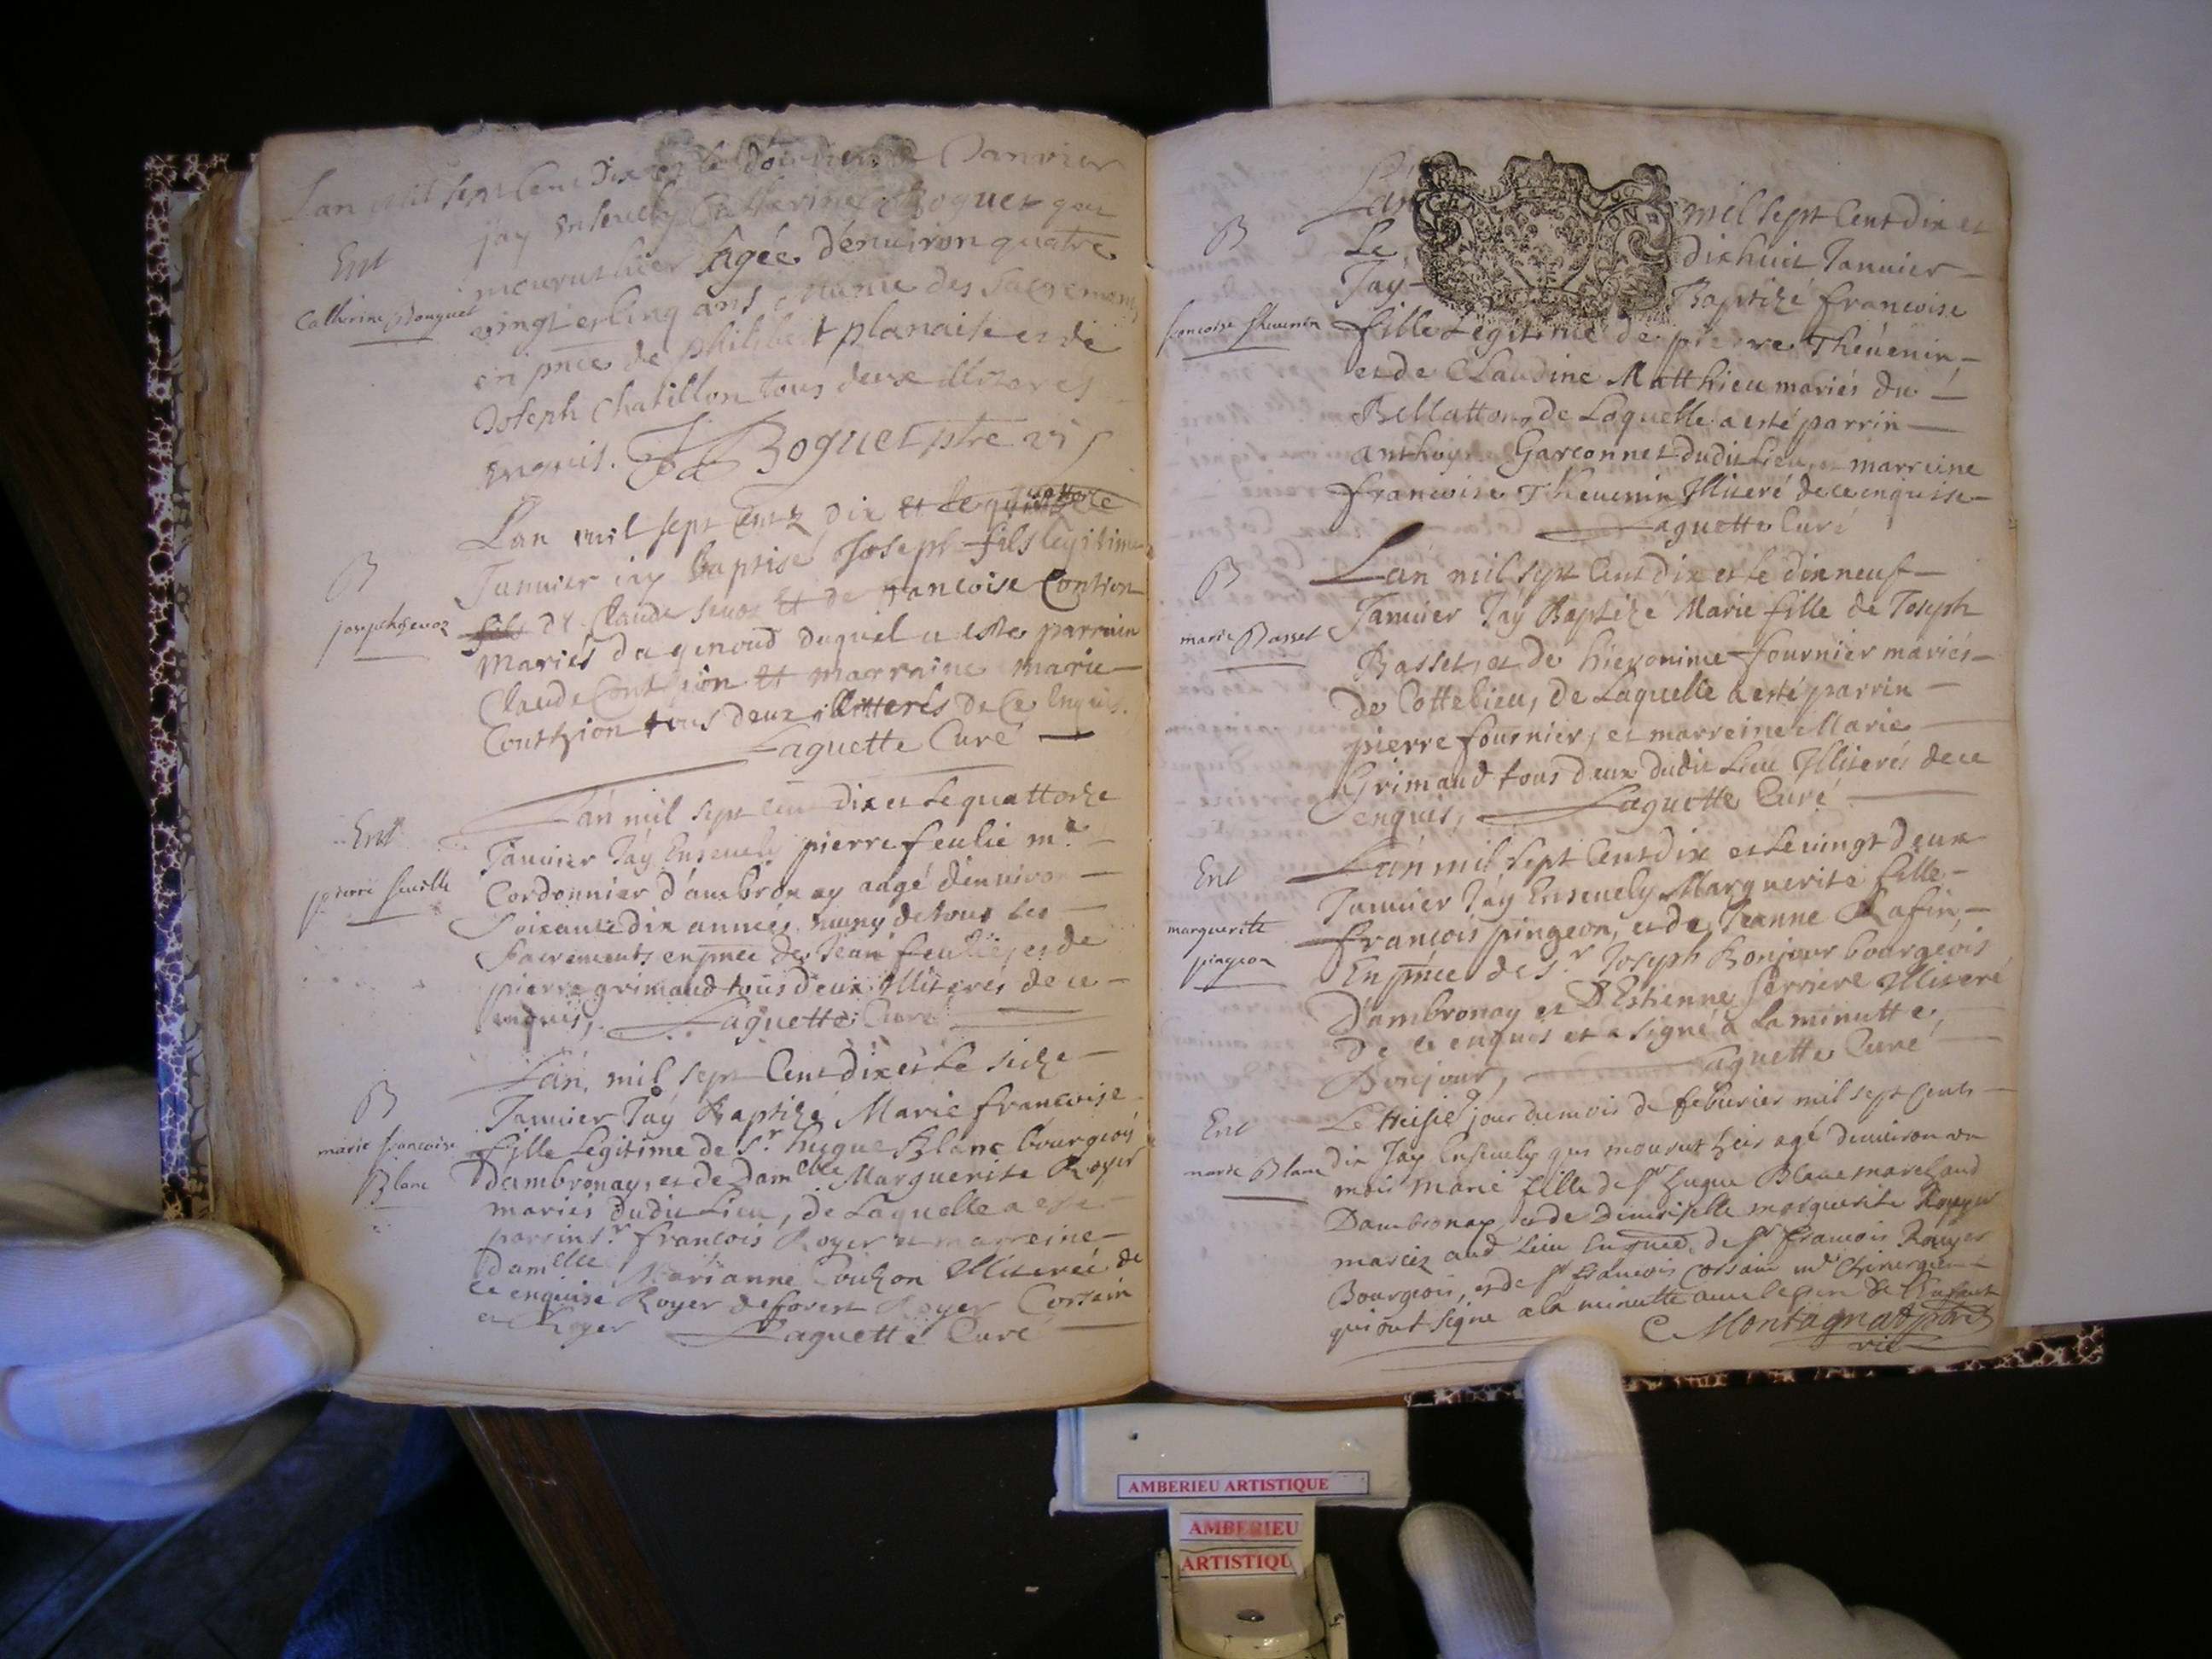 Lan mil sept Cent Dix et le Janvier
jay ensevely Catherine Boguet qui
Ent
mourut hier agée d'enuiron quatre
Catherine Bouguet
vingt et cinq ans munie des sacremens
en pnce de philibert planaise et de
Joseph Chatillon tous deux illiteres
enquis. Boguet ptre vi
Lan mil sept Cent dix et le quattorze
B
Januier iay baptisé Joseph fils legitime
joseph
fils de Claude et de francoise Contion
Mariés du genoud duquel a este parrain
Claude Conthion et marraine marie
Conthion tous deux illitterés de Ce enquis.
Laguette Curé
Lán mil sept cent dix et le quattorze
Ent
Januier Jáy Enseuely pierre feulie me.
pierre feuille
Cordonnier d'ambronay aagé denuiron
Soixante dix années muny de tous les
Sacrements en pnce de Jean feulie, et de
pierre grimaud tous deux Illiterés de ce
enquis, Laguette Curé
Lán, mil sept Cent dix et le sieze
B
Januier Jáy Baptizé Marie francoise
marie francoise
fille Legitime de Sr. hugue Blanc bourgeois
Blanc
d'ambronay, et de damelle Marguerite Royer
mariés dudit Lieu, de Laquelle a esté
parrin sr. francois Royer et marreine
damelle Marianne Couchon Illiterée de
ce enquise Royer deforest Royer Corsain
et Royer Laguette Curé
Lán mil sept Cent dix et
B
Le dixhuit Januier
Jay Baptizé francoise
francoise theuenin
fille Legitime de pierre Théuenin
et de Claudine Matthieu mariés du
Bellatton, de Laquelle a esté parrin
anthoy Garconnet dudit Lieu, et marreine
francoise Theuenin Illiteré de ce enquise
Laguette Curé
Lán mil sept Cent dix et le dix neuf
B
Januier Jáy Baptize Marie fille de Joseph
marie Basset
Basset, et de hieronime fournier mariés
de Cottelieu, de Laquelle a esté parrin
pierre fournier, et marreine Marie
Grimaud tous deux dudit Lieu Illiterés de ce
enquis, Laguette Curé
Lán mil sept Cent dix et le vingt deux
Ent
Januier Jay Enseuely Marguerite fille
marguerite
francois pingeon, et de Jeanne Rafin,
pingeon
En pnce de Sr. Joseph Bonjour bourgeois
D'ambronay et D'Estienne ferriere Illiteré
De ce enquis et a signé a la minutte
Bonjour, Laguette Curé
Le jour du mois de feburier mil sept cents
Ent
dix Jay Enseuely qui mourut hier agé denuiron un
marie Blanc
mois Marie fille de sr hugue Blanc marchand
Dambronay et de demoiselle marguerite Royer
mariez aud Lieu En pnce de sr francois Royer
Bourgeois, et de sr francois Corsain md Chirurgien
qui ont signe a la minutte auec le pere de l'enfant
Montagnat ptre
vic
AMBERIEU ARTISTIQUE
AMBERIEU
ARTISTIQU